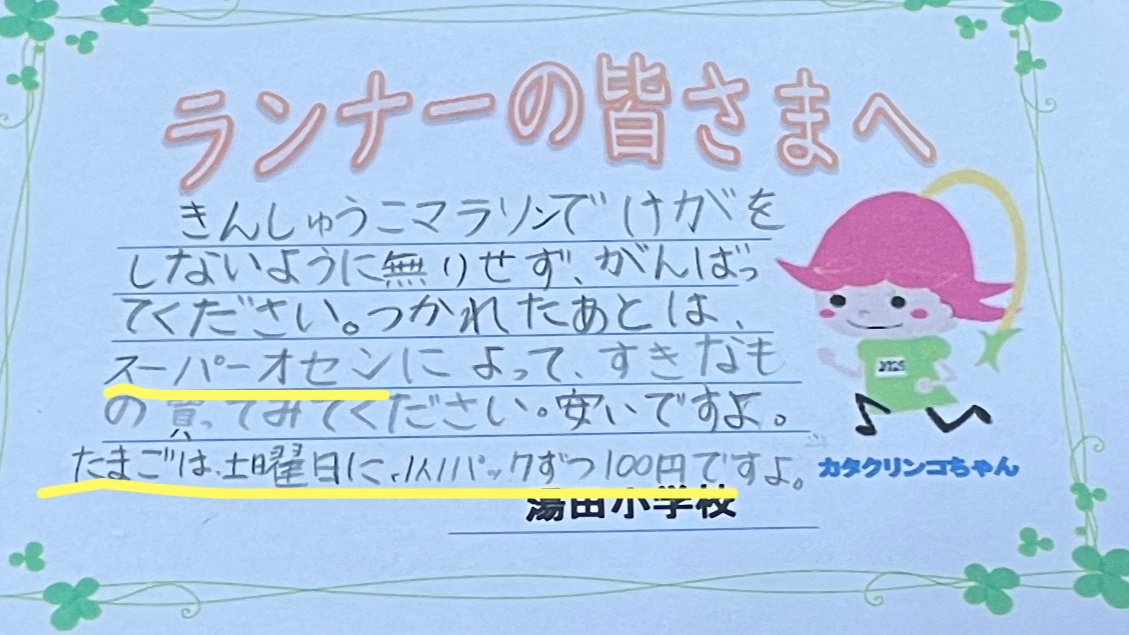 ランナーの皆さまへ
きんしゅうこマラソンでけがを
しないように無りせず、がんばっ
てください。つかれたあとは、
スーパーオセンによって、すきなも
の買ってみてください。安いですよ。
たまごは、土曜日に、1人1パックずつ100円ですよ。
2025
カタクリンコちゃん
湯田小学校